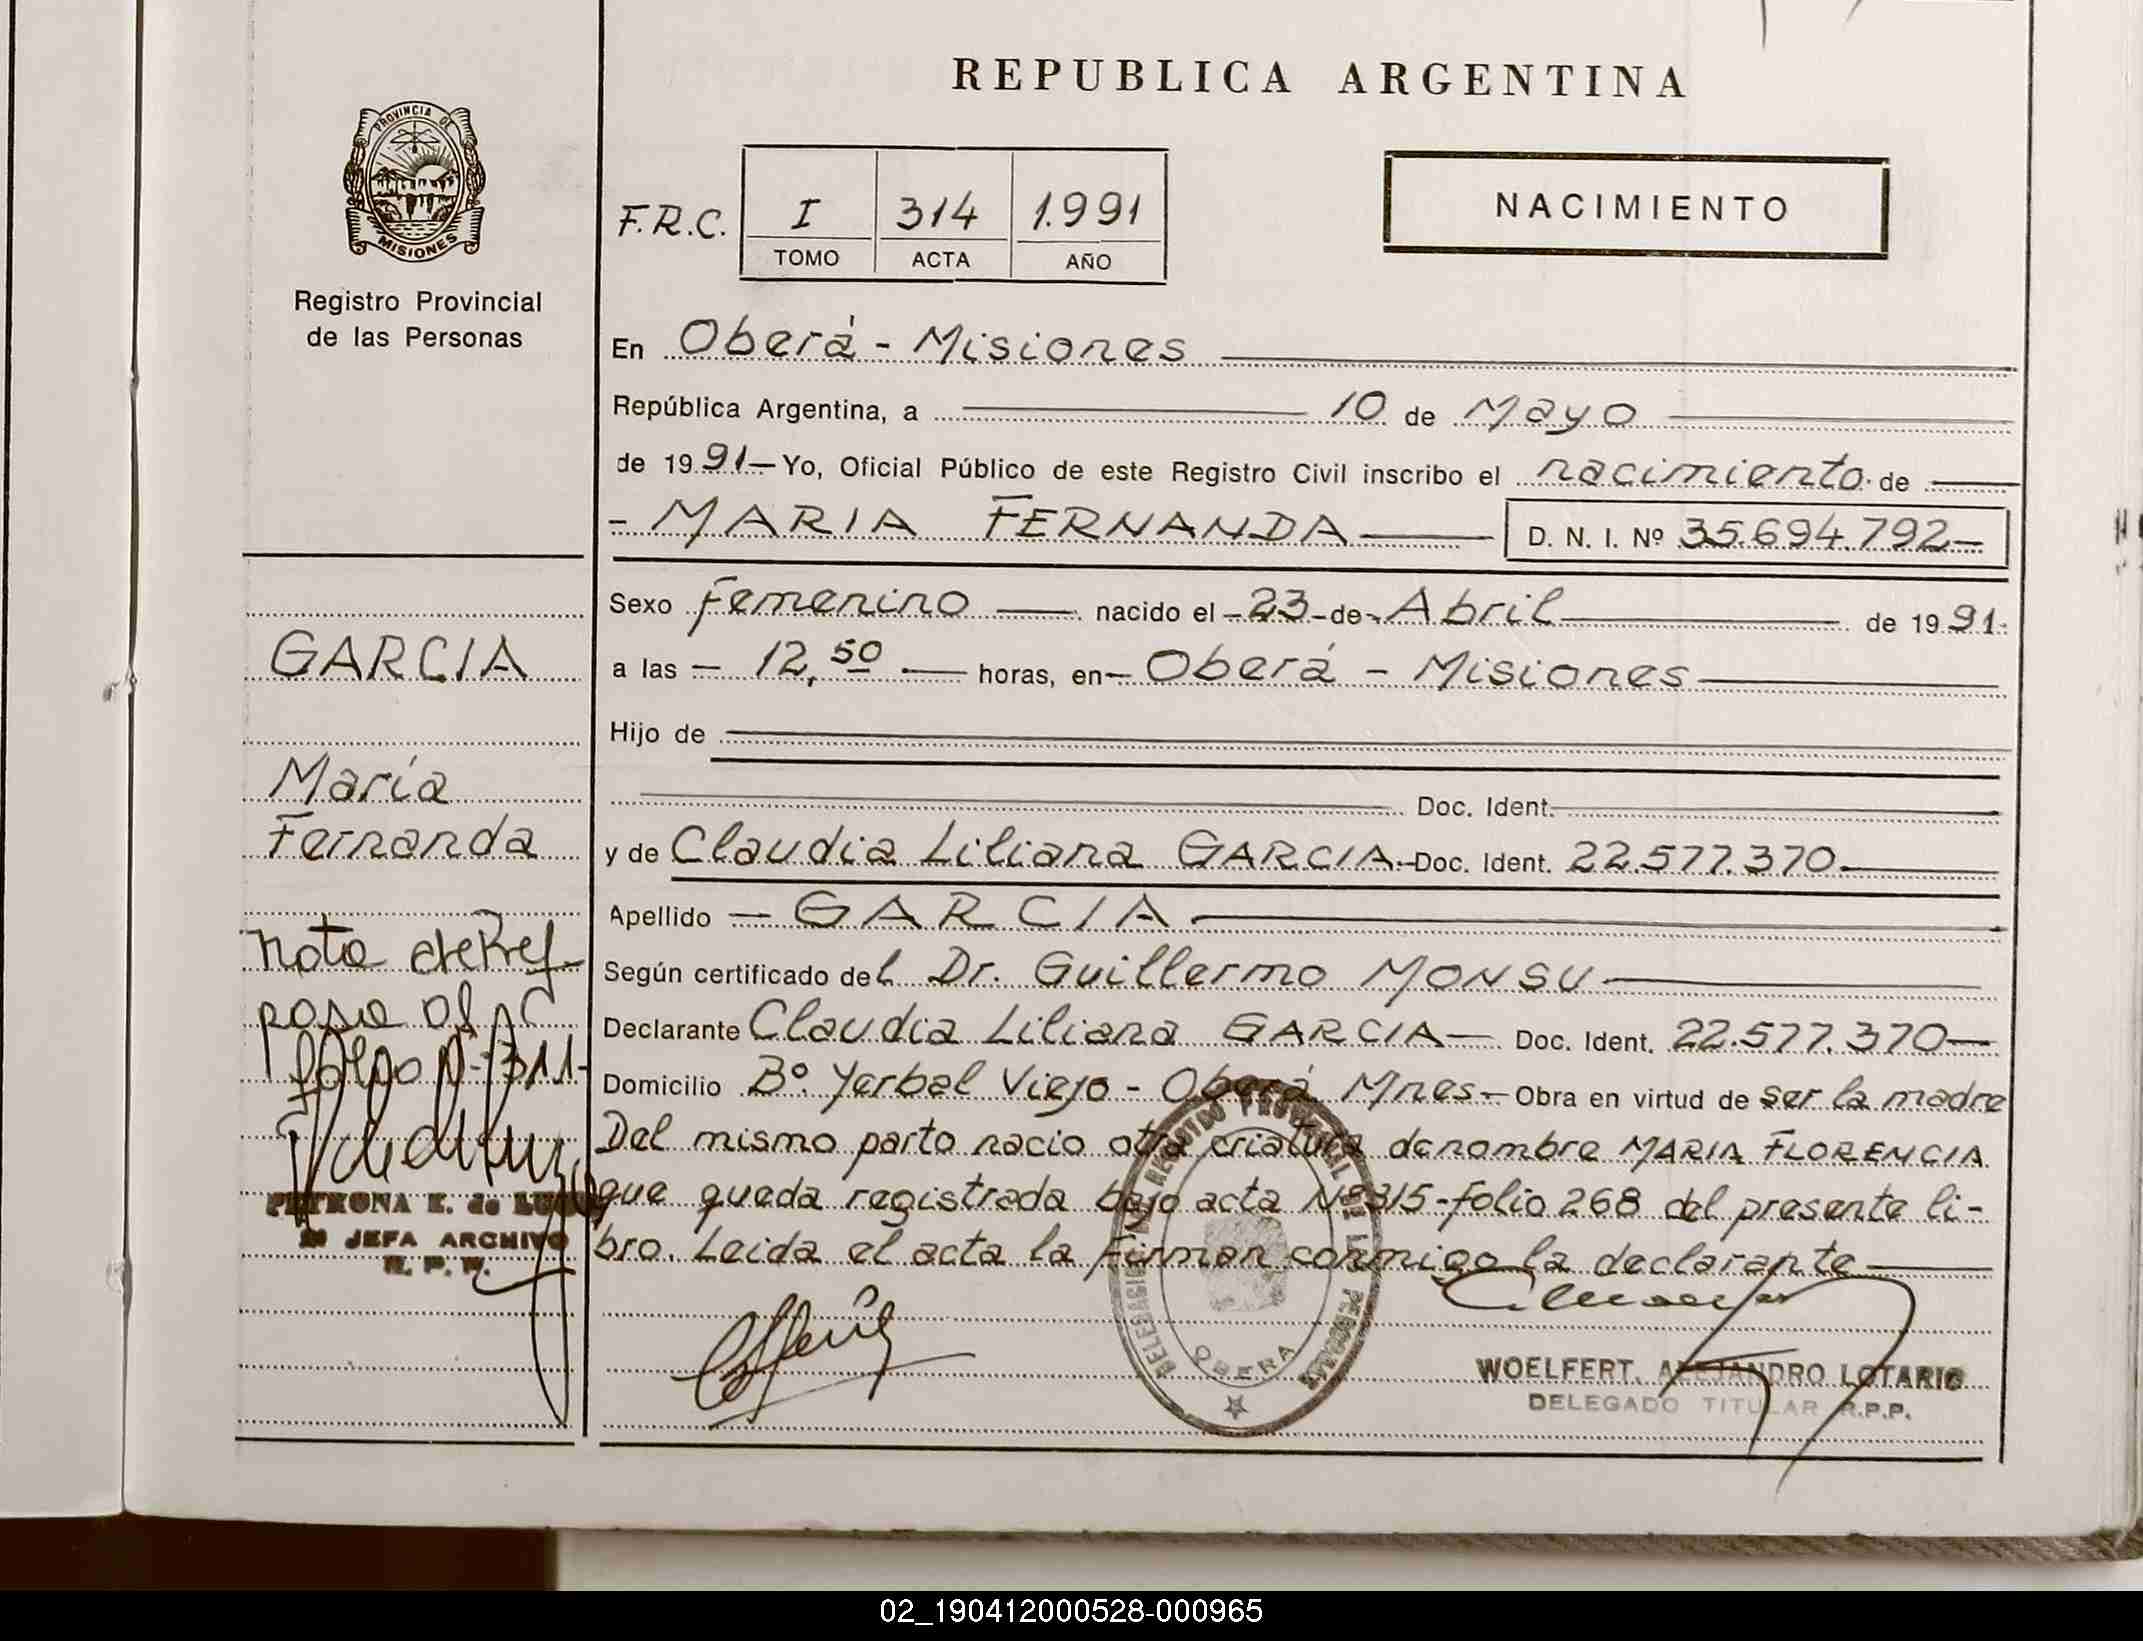 REPUBLICA ARGENTINA
PROVINCIA DE
MISIONES
Registro Provincial
de las Personas
F.R.C. I 314 1.991
TOMO ACTA AÑO
NACIMIENTO
En Oberá - Misiones
República Argentina, a 10 de Mayo
de 1991 - Yo, Oficial Público de este Registro Civil inscribo el nacimiento de
- MARIA FERNANDA — D. N. I. Nº 35.694.792 -
Sexo femenino — nacido el - 23 - de - Abril — de 1991.
a las - 12,50 — horas, en - Oberá - Misiones
Hijo de
Doc. Ident.
y de Claudia Liliana GARCIA - Doc. Ident. 22.577.370
Apellido - GARCIA
Según certificado del Dr. Guillermo MONSU
Declarante Claudia Liliana GARCIA - Doc. Ident. 22.577.370 -
Domicilio Bº. Yerbal Viejo - Oberá Mnes - Obra en virtud de ser la madre
Del mismo parto nacio otra criatura de nombre MARIA FLORENCIA
que queda registrada bajo acta Nº 315 - folio 268 del presente li-
bro. Leida el acta la firman conmigo la declarante
GARCIA
María
Fernanda
Nota de Ref.
folio Nº 311 -
PETRONA E. de LUGO
JEFA ARCHIVO
R. P. P.
DELEGACION REGISTRO PROVINCIAL DE LAS PERSONAS
OBERA
WOELFERT, ALEJANDRO LOTARIO
DELEGADO TITULAR R.P.P.
02_190412000528-000965